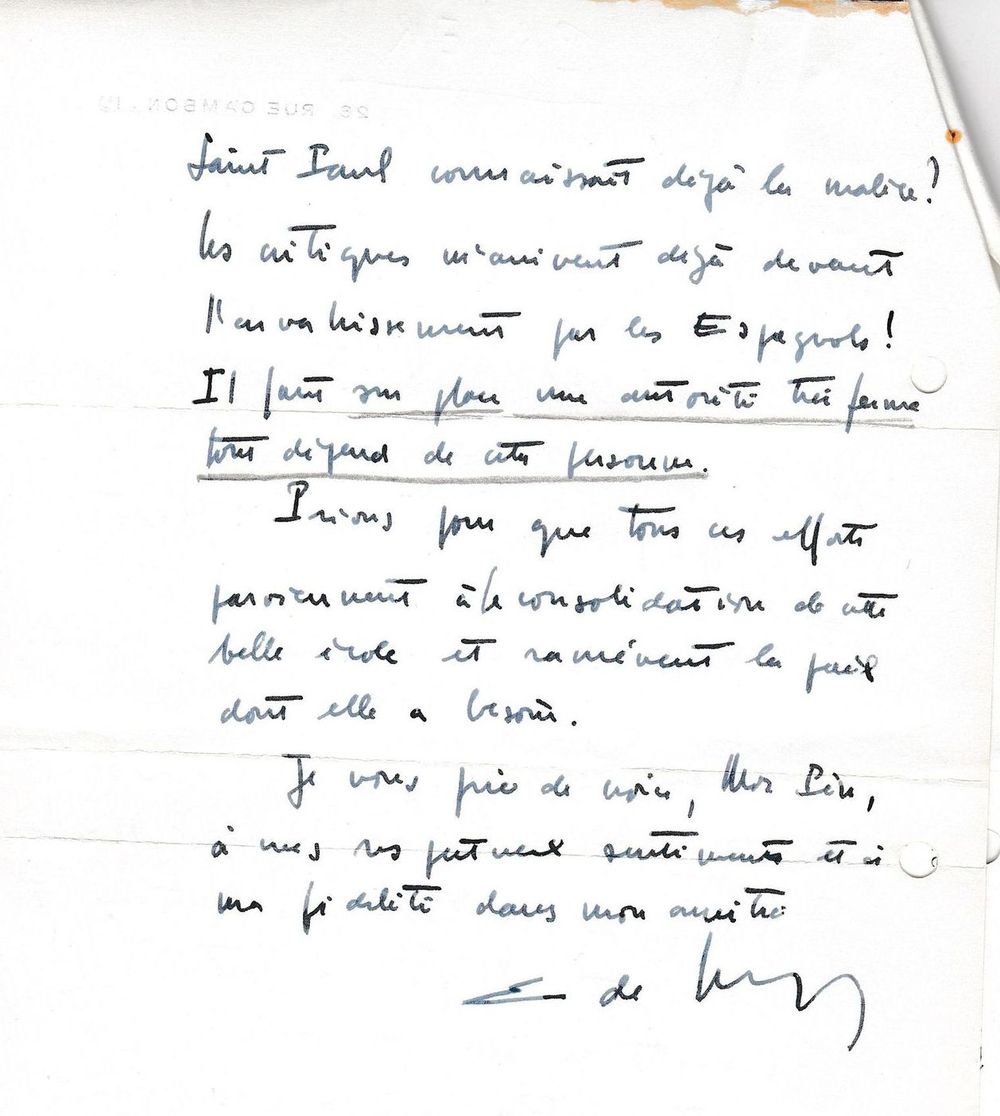 26, RUE CAMBON. 1er
Saint Paul connaissait déjà la malice!
les critiques m'arrivent déjà devant
l'envahissement par les Espagnols!
Il faut sur place une autorité très ferme
tout dépend de cette personne.
Prions pour que tous ces efforts
parviennent à la consolidation de cette
belle école et ramènent la paix
dont elle a besoin.
Je vous prie de croire, Mon Père,
à mes respectueux sentiments et à
ma fidélité dans mon amitié
de